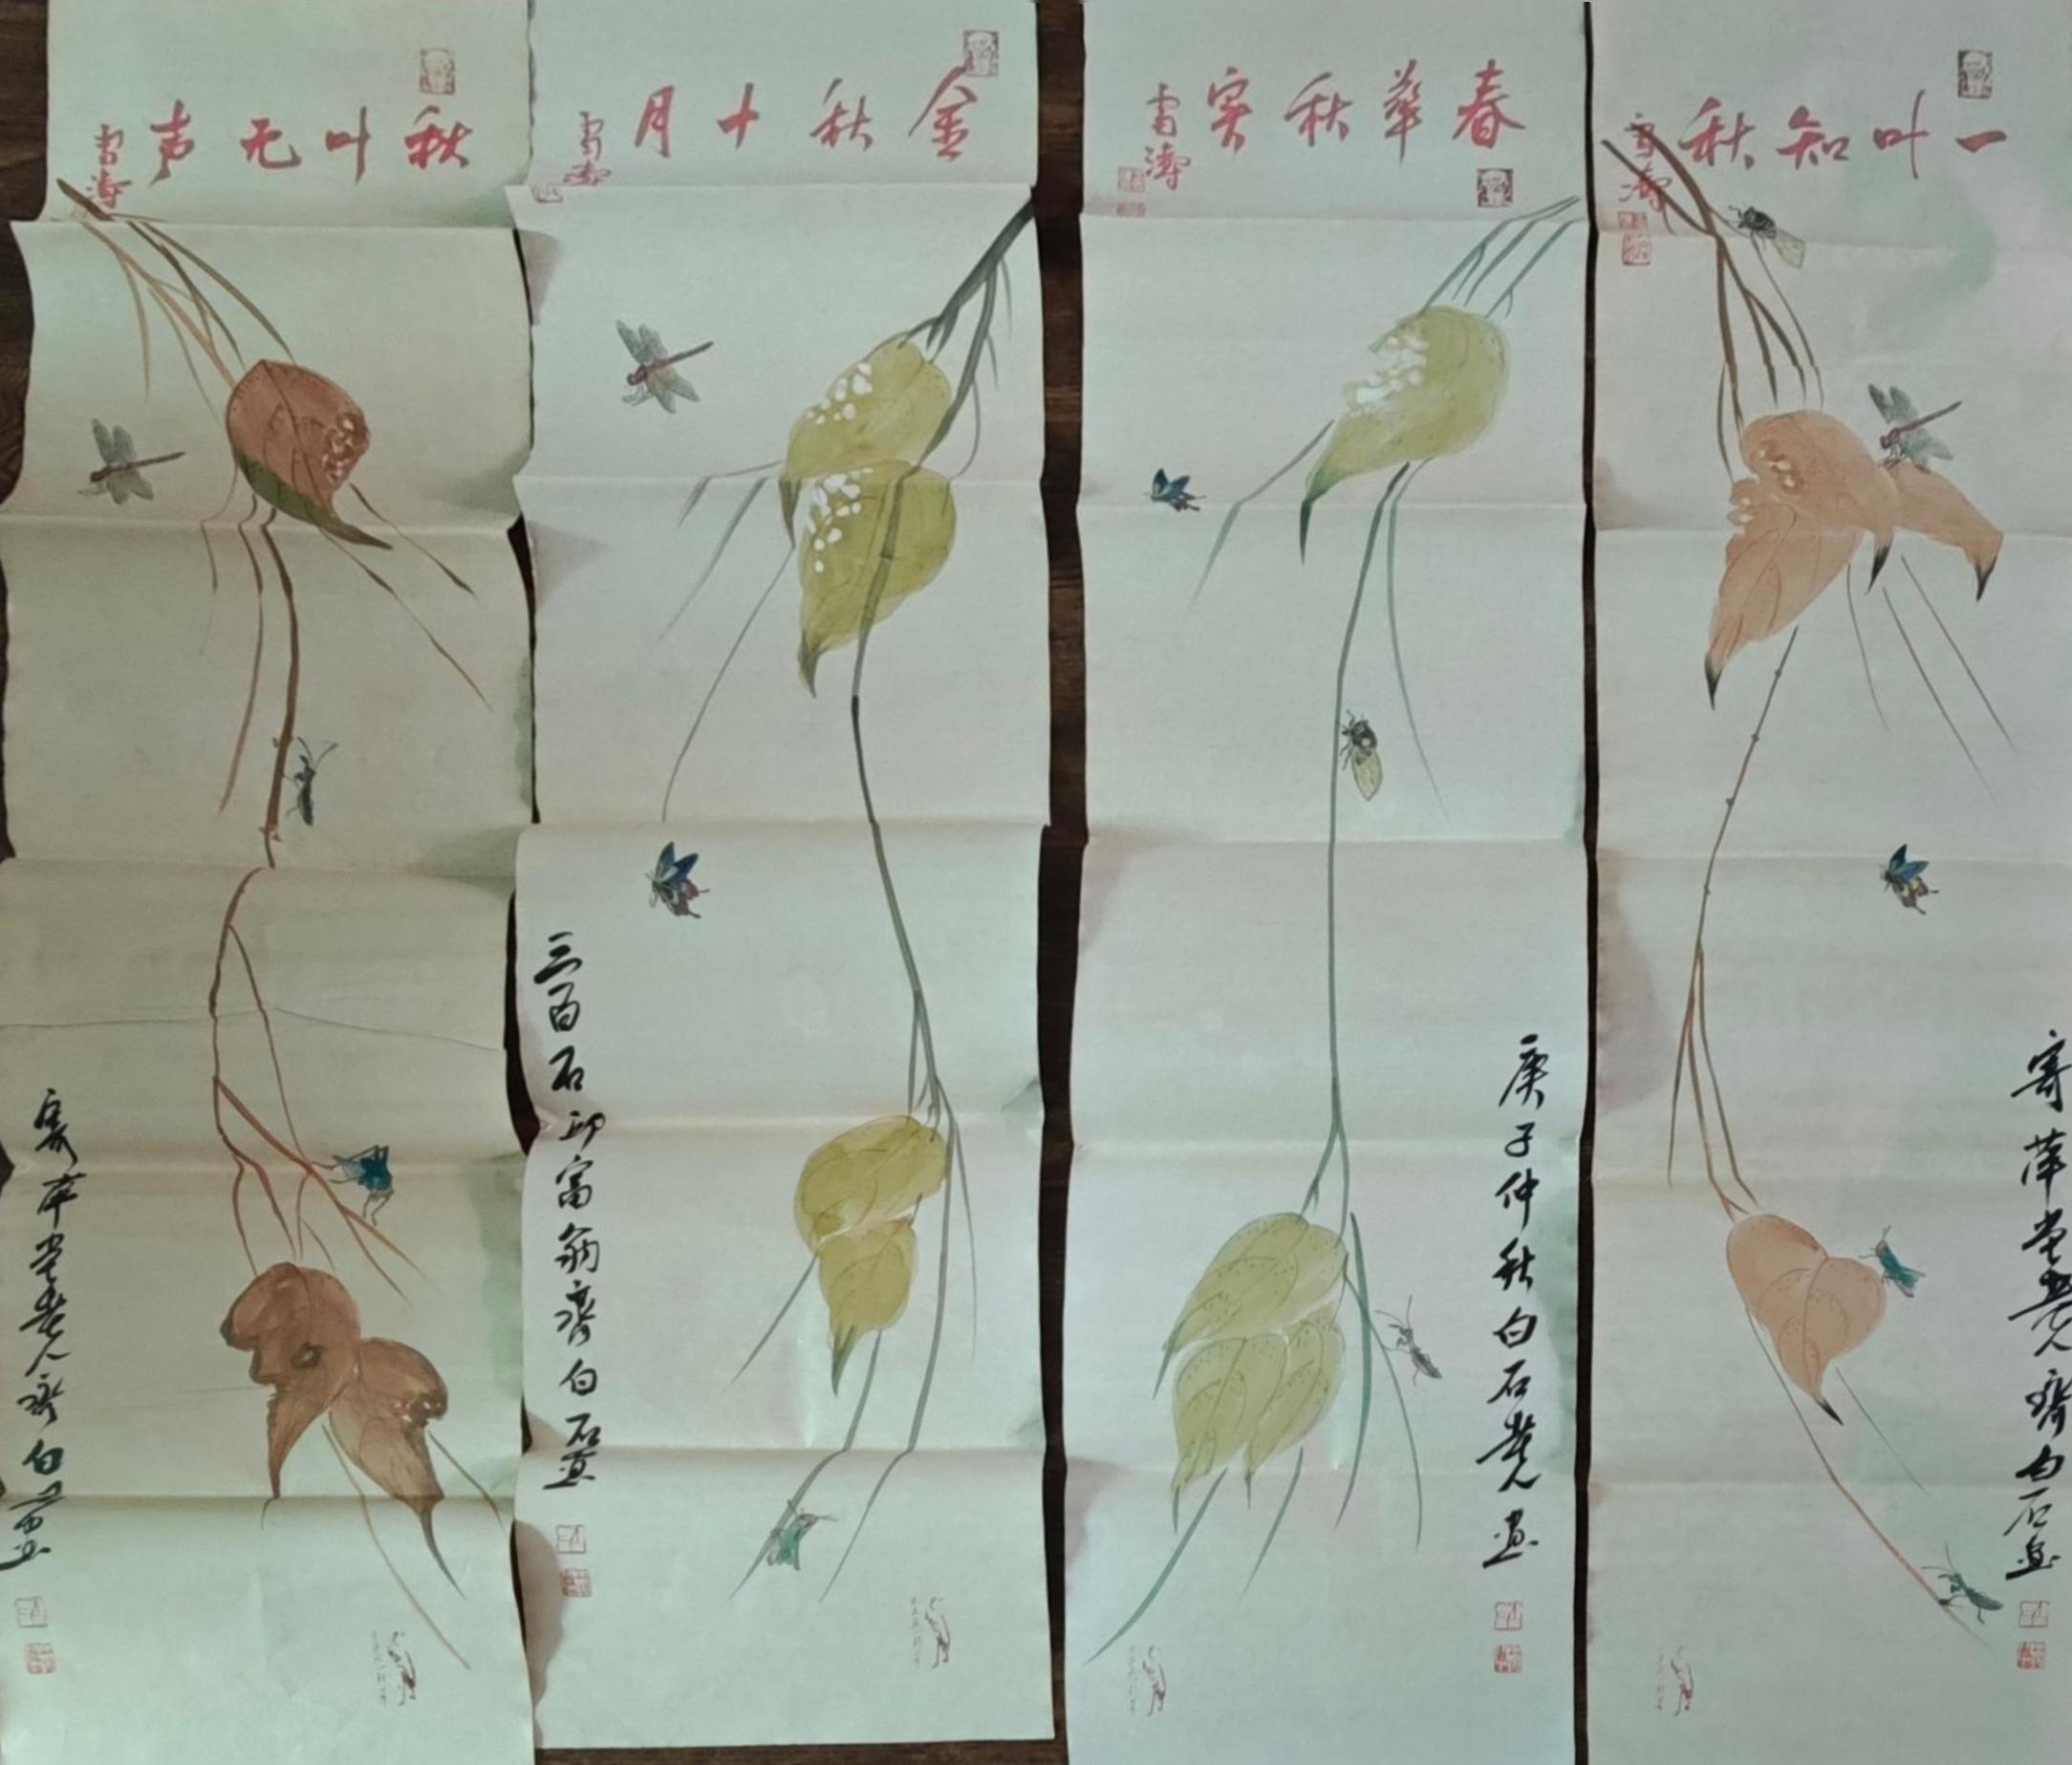 秋叶无声
雪涛
寄萍堂老人齐白石画
金秋十月
雪涛
三百石印富翁齐白石画
春华秋实
雪涛
庚子仲秋白石老人画
一叶知秋
雪涛
寄萍堂老人齐白石画